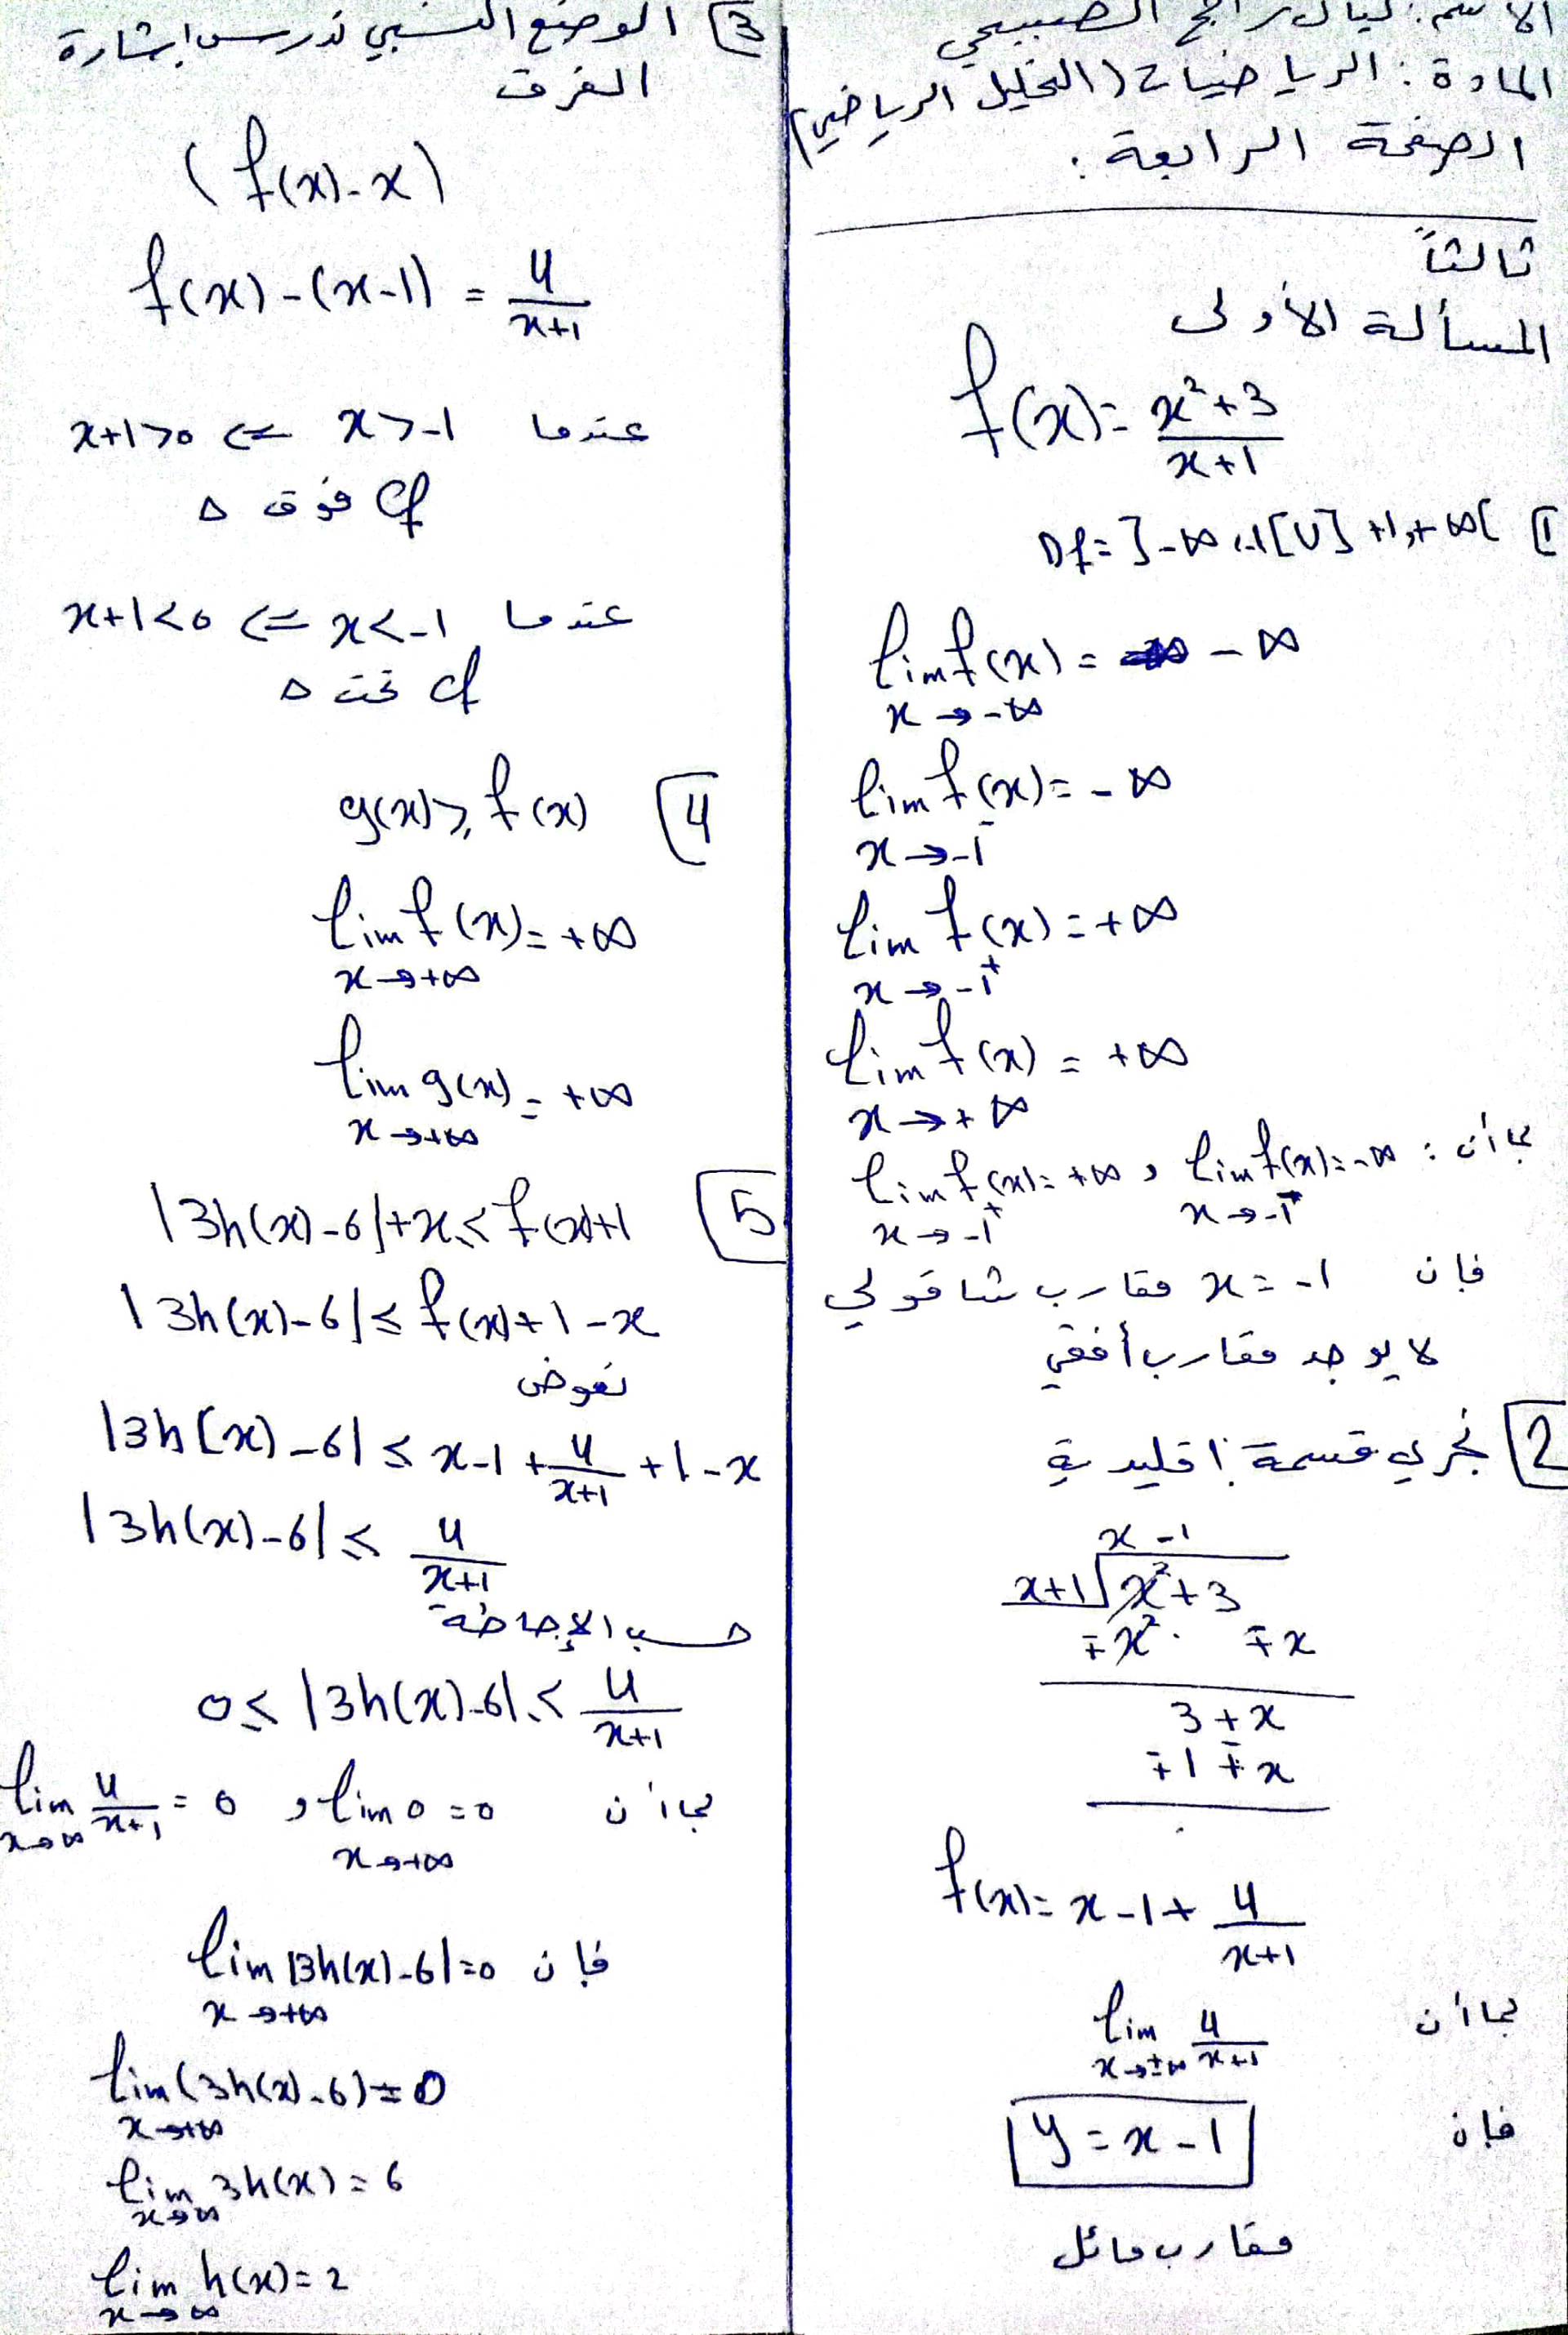 الاسم: ليال رابح الصبيحي
المادة: الرياضيات (التحليل الرياضي)
الصفحة الرابعة.
ثالثاً
المسألة الأولى
f(x) = (x²+3)/(x+1)
1 Df = ]-∞, -1[ ∪ ] +1, +∞[
lim f(x) = -∞
x → -∞
lim f(x) = -∞
x → -1⁻
lim f(x) = +∞
x → -1⁺
lim f(x) = +∞
x → +∞
بما أن: lim f(x) = -∞ و lim f(x) = +∞
x → -1⁻ x → -1⁺
فإن x = -1 مقارب شاقولي
لا يوجد مقارب أفقي
2 نجري قسمة إقليدية
x - 1
x+1 √ x²+3
∓x² ∓x
3 + x
∓1 ∓x
f(x) = x - 1 + 4/(x+1)
بما أن lim 4/(x+1)
x → ±∞
فإن y = x - 1
مقارب مائل
3 الوضع النسبي ندرس إشارة
الفرق
(f(x) - x)
f(x) - (x-1) = 4/(x+1)
عندما x > -1 ⇐ x+1 > 0
Cf فوق Δ
عندما x < -1 ⇐ x+1 < 0
Cf تحت Δ
4 g(x) ≥ f(x)
lim f(x) = +∞
x → +∞
lim g(x) = +∞
x → +∞
5 |3h(x) - 6| + x ≤ f(x) + 1
|3h(x) - 6| ≤ f(x) + 1 - x
نعوض
|3h(x) - 6| ≤ x - 1 + 4/(x+1) + 1 - x
|3h(x) - 6| ≤ 4/(x+1)
حسب الإحاطة
0 ≤ |3h(x) - 6| ≤ 4/(x+1)
بما أن lim 0 = 0 و lim 4/(x+1) = 0
x → +∞ x → ∞
فإن lim |3h(x) - 6| = 0
x → +∞
lim (3h(x) - 6) = 0
x → +∞
lim 3h(x) = 6
x → ∞
lim h(x) = 2
x → ∞